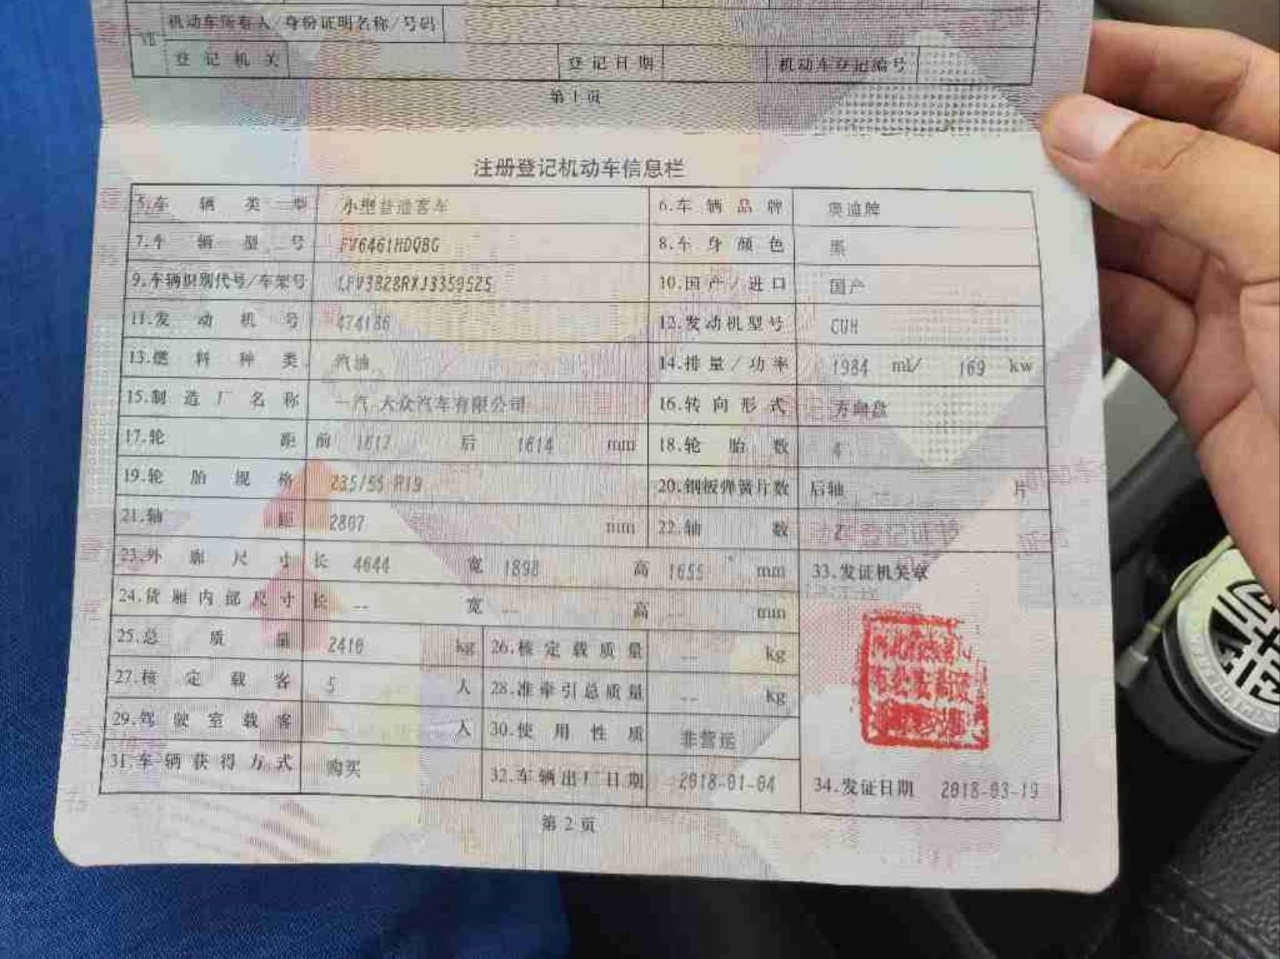 Ⅶ 机动车所有人/身份证明名称/号码
登记机关 登记日期 机动车登记编号
第1页
注册登记机动车信息栏
5.车辆类型 小型普通客车 6.车辆品牌 奥迪牌
7.车辆型号 FV6461HDQBG 8.车身颜色 黑
9.车辆识别代号/车架号 LFV3B28RXJ3359525 10.国产/进口 国产
11.发动机号 474186 12.发动机型号 CUH
13.燃料种类 汽油 14.排量/功率 1984 ml/ 169 kw
15.制造厂名称 一汽-大众汽车有限公司 16.转向形式 方向盘
17.轮距 前 1617 后 1614 mm 18.轮胎数 4
19.轮胎规格 235/55 R19 20.钢板弹簧片数 后轴 片
21.轴距 2807 mm 22.轴数 2
23.外廓尺寸 长 4644 宽 1898 高 1655 mm 33.发证机关章
24.货厢内部尺寸 长 -- 宽 -- 高 -- mm
25.总质量 2410 kg 26.核定载质量 -- kg
27.核定载客 5 人 28.准牵引总质量 -- kg
29.驾驶室载客 -- 人 30.使用性质 非营运
31.车辆获得方式 购买 32.车辆出厂日期 2018-01-04 34.发证日期 2018-03-19
第2页